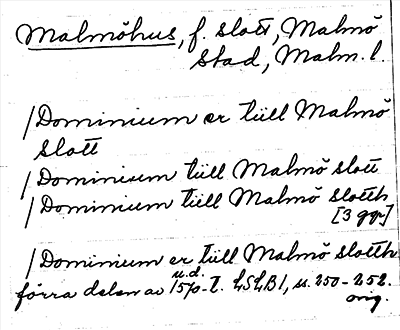 Malmöhus, f. slott, Malmö
stad, Malm. l.
/Dominium er tüll Malmö
slott
/Dominium tüll Malmö slott
/Dominium tüll Malmö slotth
[3 ggr]
/Dominium er tüll Malmö slotth
u.d.
förra delen av 1570-t. LSLB1, ss. 250-252.
orig.